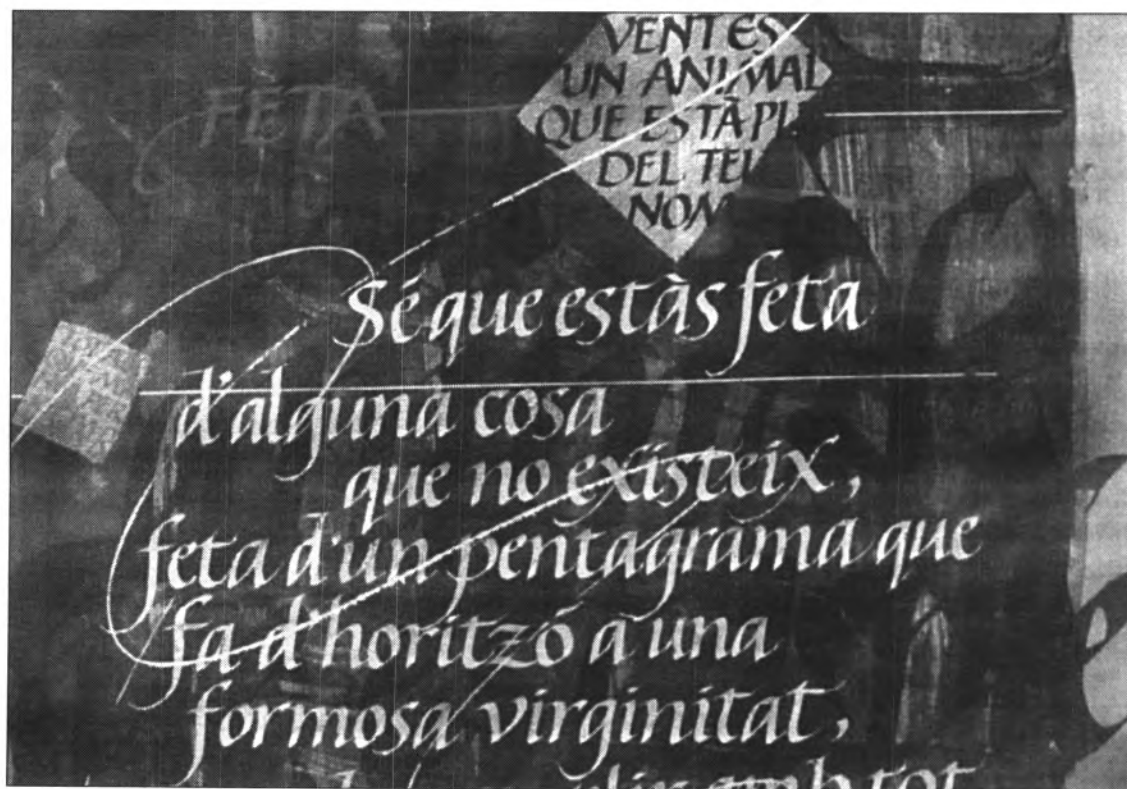 VENT ES
UN ANIMAL
QUE ESTÀ
DEL TEU
NOM
FETA
Sé que estàs feta
d'alguna cosa
que no existeix,
feta d'un pentagrama que
fa d'horitzó a una
formosa virginitat,
amb tot